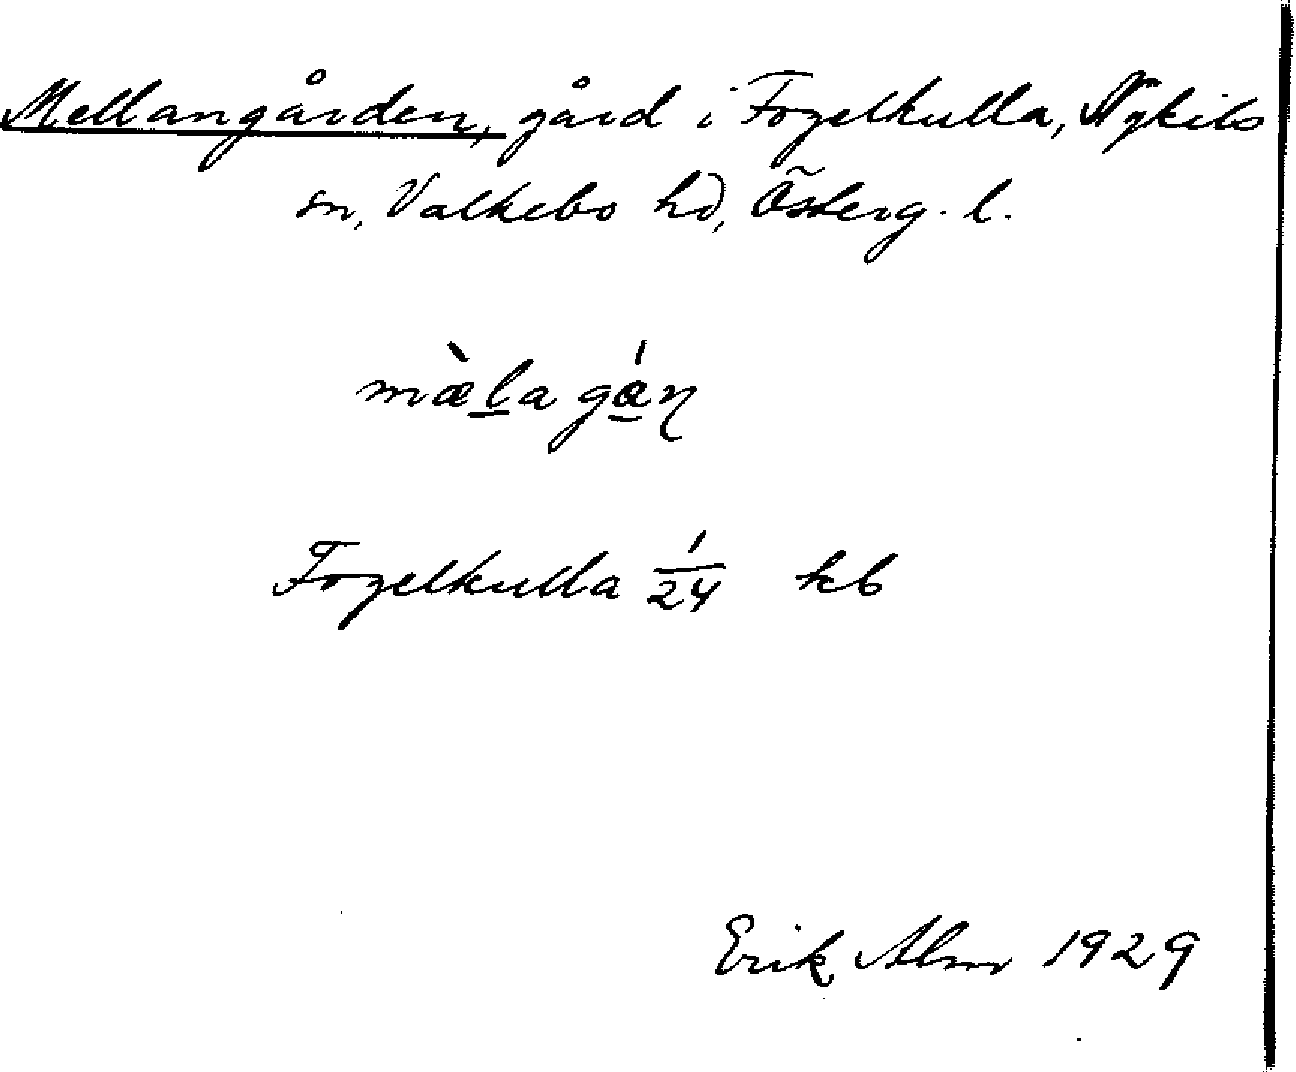 Mellangården, gård i Fogelkulla, Nykils
sn, Valkebo hd, Österg. l.
mæ̀l̲a gá̲ɳ
Fogelkulla 1/24 kb
Erik Alm 1929